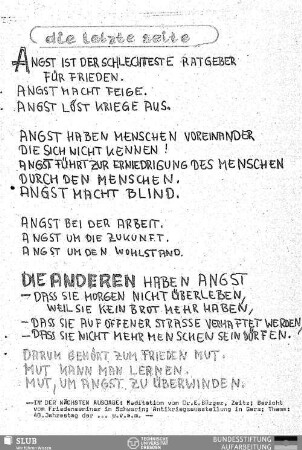 die letzte seite
ANGST IST DER SCHLECHTESTE RATGEBER
FÜR FRIEDEN.
ANGST MACHT FEIGE.
ANGST LÖST KRIEGE AUS.
ANGST HABEN MENSCHEN VOREINANDER
DIE SICH NICHT KENNEN!
ANGST FÜHRT ZUR ERNIEDRIGUNG DES MENSCHEN
DURCH DEN MENSCHEN.
ANGST MACHT BLIND.
ANGST BEI DER ARBEIT.
ANGST UM DIE ZUKUNFT.
ANGST UM DEN WOHLSTAND.
DIE ANDEREN HABEN ANGST
- DASS SIE MORGEN NICHT ÜBERLEBEN,
WEIL SIE KEIN BROT MEHR HABEN,
- DASS SIE AUF OFFENER STRASSE VERHAFTET WERDEN,
- DASS SIE NICHT MEHR MENSCHEN SEIN DÜRFEN.
DARUM GEHÖRT ZUM FRIEDEN MUT.
MUT KANN MAN LERNEN.
MUT, UM ANGST ZU ÜBERWINDEN.
IN DER NÄCHSTEN AUSGABE: Meditation von Dr.E. Zeitz; Bericht
vom Friedensseminar in Antikriegsausstellung in Gera; Thema:
40.Jahrestag der ... u.v.a.m.
SLUB
Wir führen Wissen.
TECHNISCHE
UNIVERSITÄT
DRESDEN
BUNDESSTIFTUNG
AUFARBEITUNG